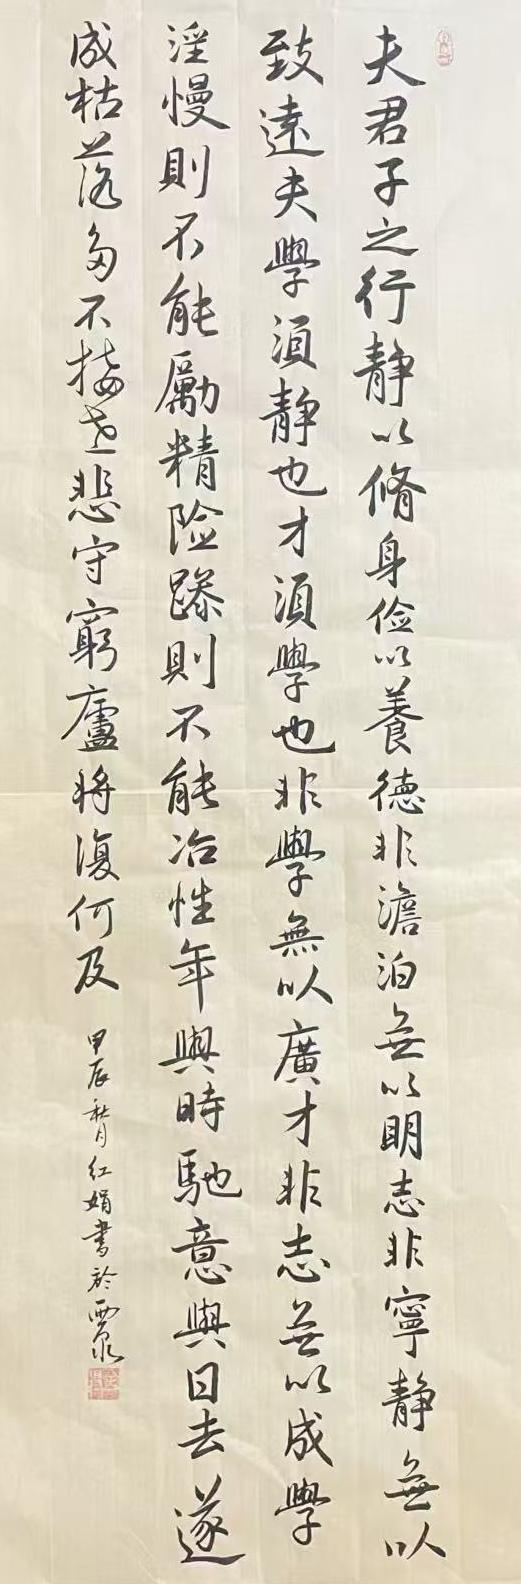 夫君子之行静以脩身俭以養德非澹泊無以明志非寧静無以
致遠夫學湏静也才湏學也非學無以廣才非志無以成學
淫慢則不能勵精险躁則不能冶性年與時馳意與日去遂
成枯落多不接世悲守窮廬将復何及
甲辰秋月红娟書於